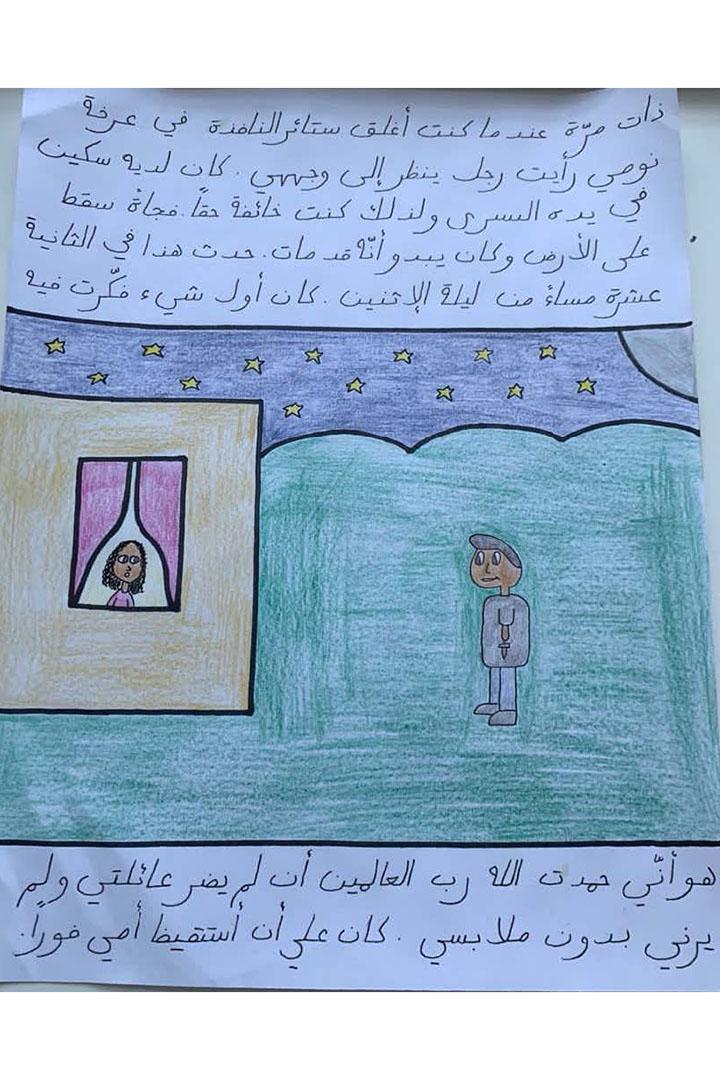 ذات مرّة عندما كنت أغلق ستائر النافذة في غرفة
نومي رأيت رجل ينظر إلى وجهي. كان لديه سكين
في يده اليسرى ولذلك كنت خائفة حقاً. فجأة سقط
على الأرض وكان يبدو أنّه قد مات. حدث هذا في الثانية
عشرة مساءً من ليلة الإثنين. كان أول شيء فكّرت فيه
هو أنّي حمدت الله رب العالمين أن لم يضر عائلتي ولم
يرني بدون ملابسي. كان علي أن أستقيظ أمي فوراً.